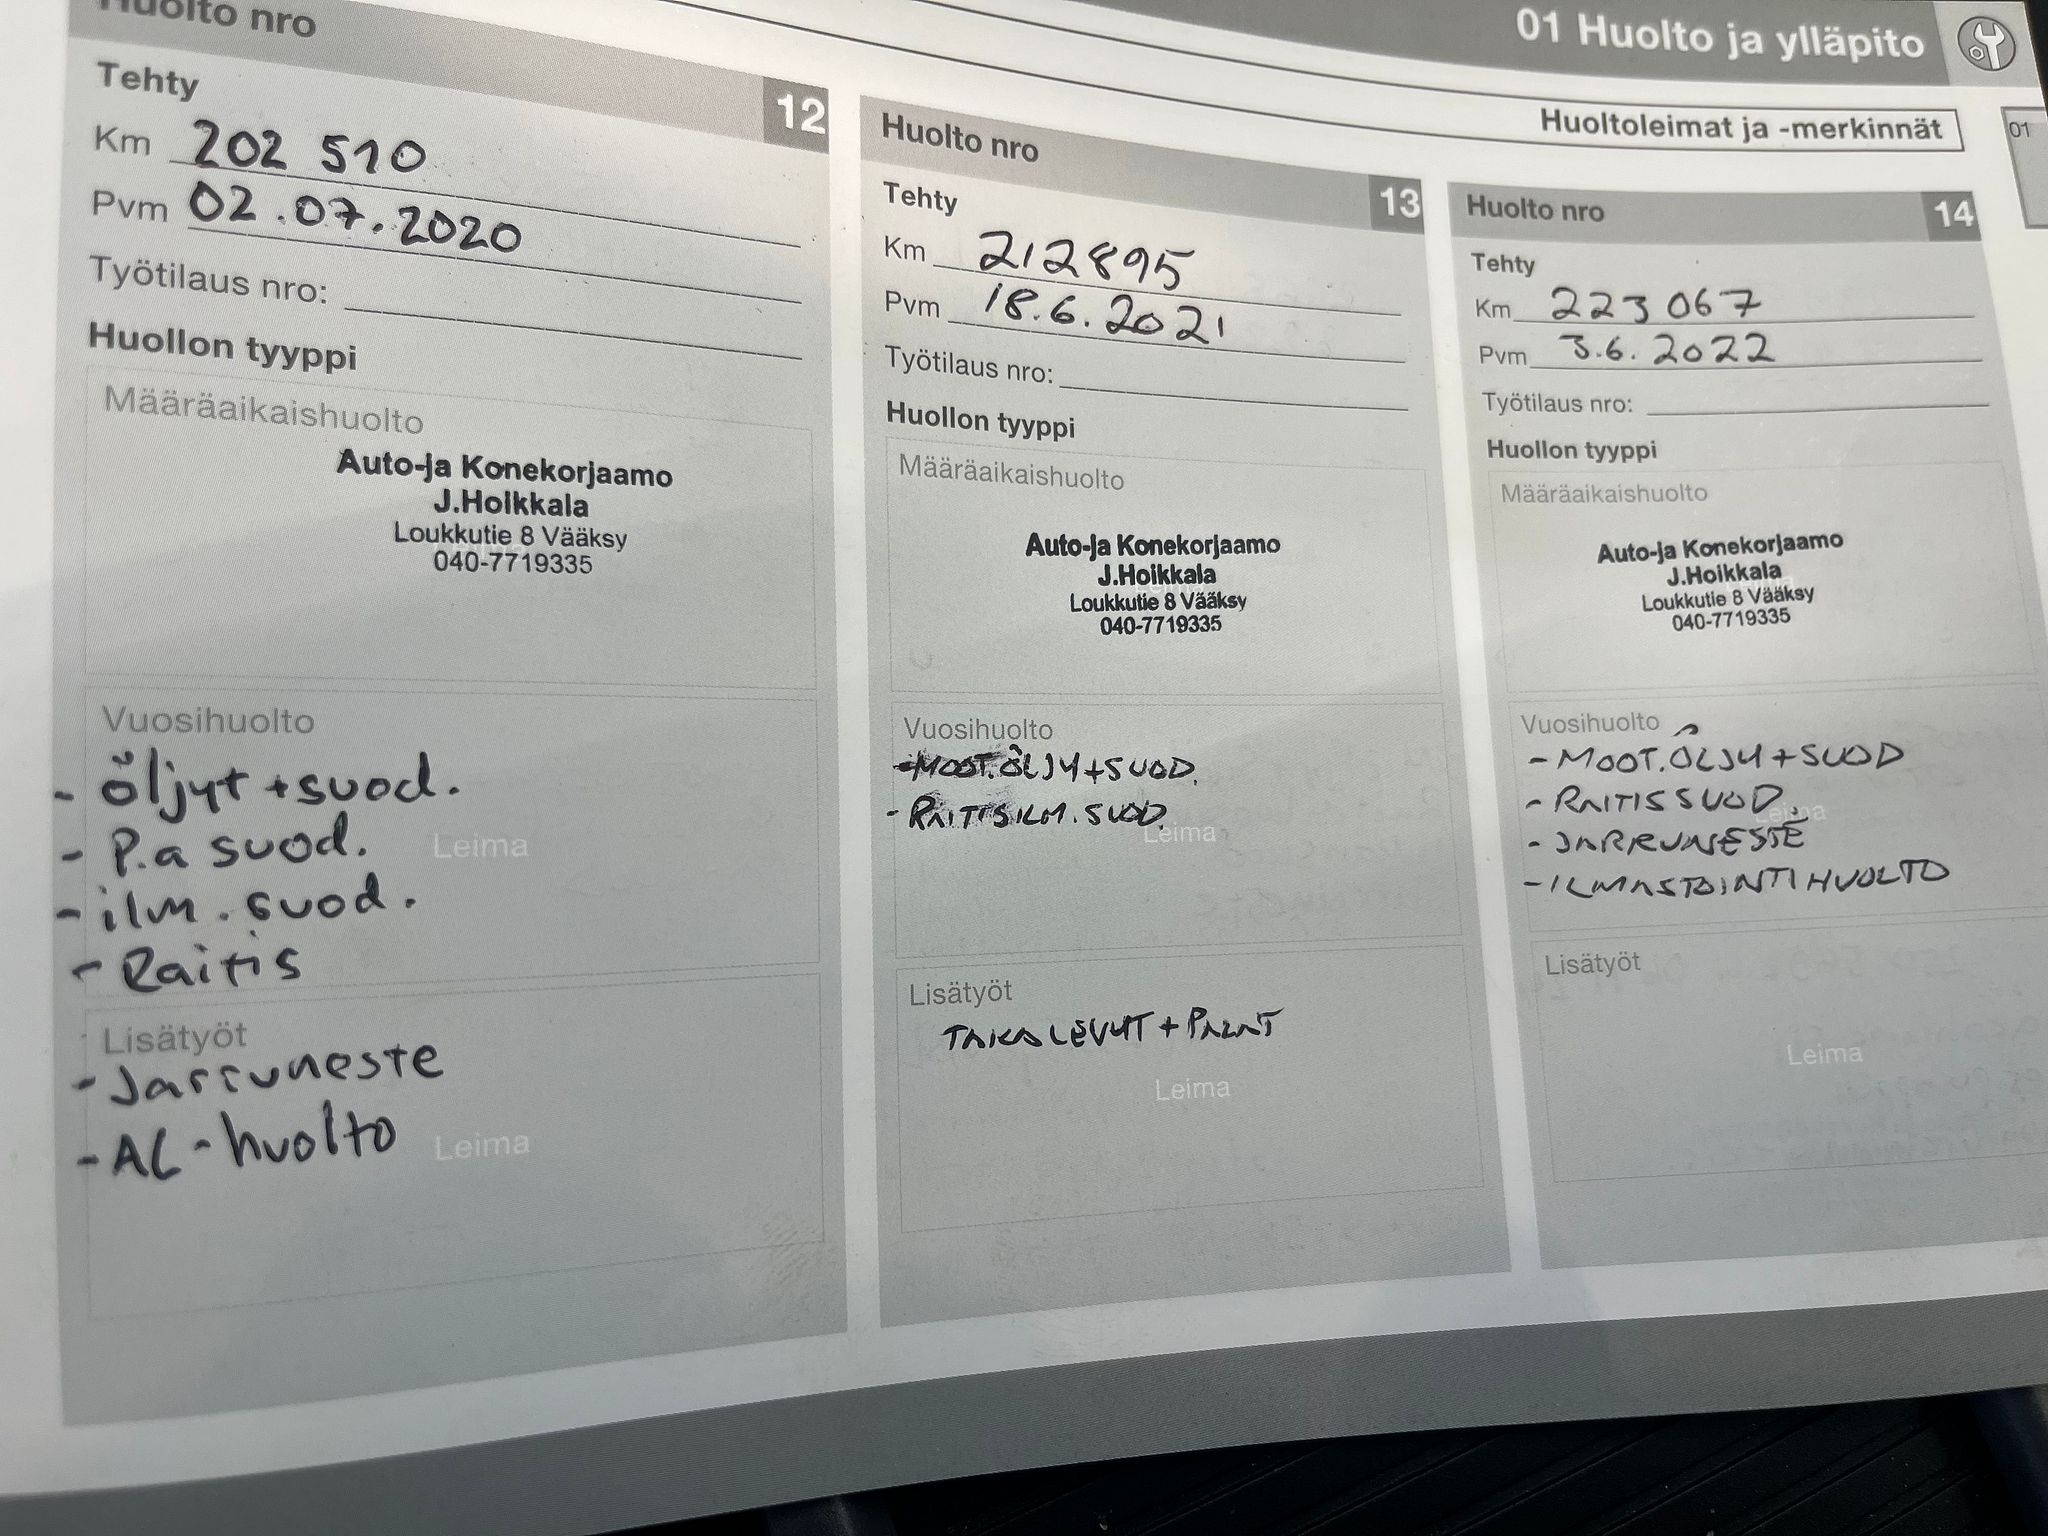 01 Huolto ja ylläpito
Huoltoleimat ja -merkinnät
01
Huolto nro
12
Tehty
Km 202 510
Pvm 02.07.2020
Työtilaus nro:
Huollon tyyppi
Määräaikaishuolto
Auto-ja Konekorjaamo
J.Hoikkala
Loukkutie 8 Vääksy
040-7719335
Vuosihuolto
- öljyt + suod.
- P.a suod.
Leima
- ilm. suod.
- Raitis
Lisätyöt
- Jarruneste
- AC-huolto
Leima
Huolto nro
13
Tehty
Km 212895
Pvm 18.6.2021
Työtilaus nro:
Huollon tyyppi
Määräaikaishuolto
Auto-ja Konekorjaamo
J.Hoikkala
Loukkutie 8 Vääksy
040-7719335
Vuosihuolto
- MOOT.ÖLJY+SUOD.
- RAITISILM.SUOD.
Leima
Lisätyöt
TAKALEVYT + PALAT
Leima
Huolto nro
14
Tehty
Km 223 067
Pvm 3.6.2022
Työtilaus nro:
Huollon tyyppi
Määräaikaishuolto
Auto-ja Konekorjaamo
J.Hoikkala
Loukkutie 8 Vääksy
040-7719335
Vuosihuolto
- MOOT.ÖLJY+SUOD
- RAITISSUOD.
Leima
- JARRUNESTE
- ILMASTOINTIHUOLTO
Lisätyöt
Leima